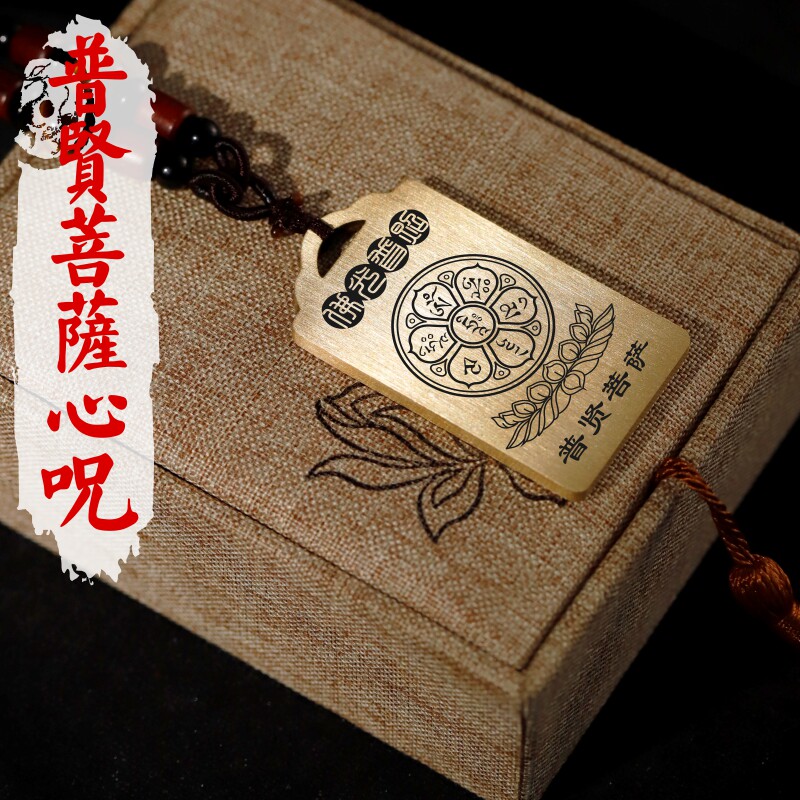 普賢菩薩心咒
佛光普照
普贤菩萨